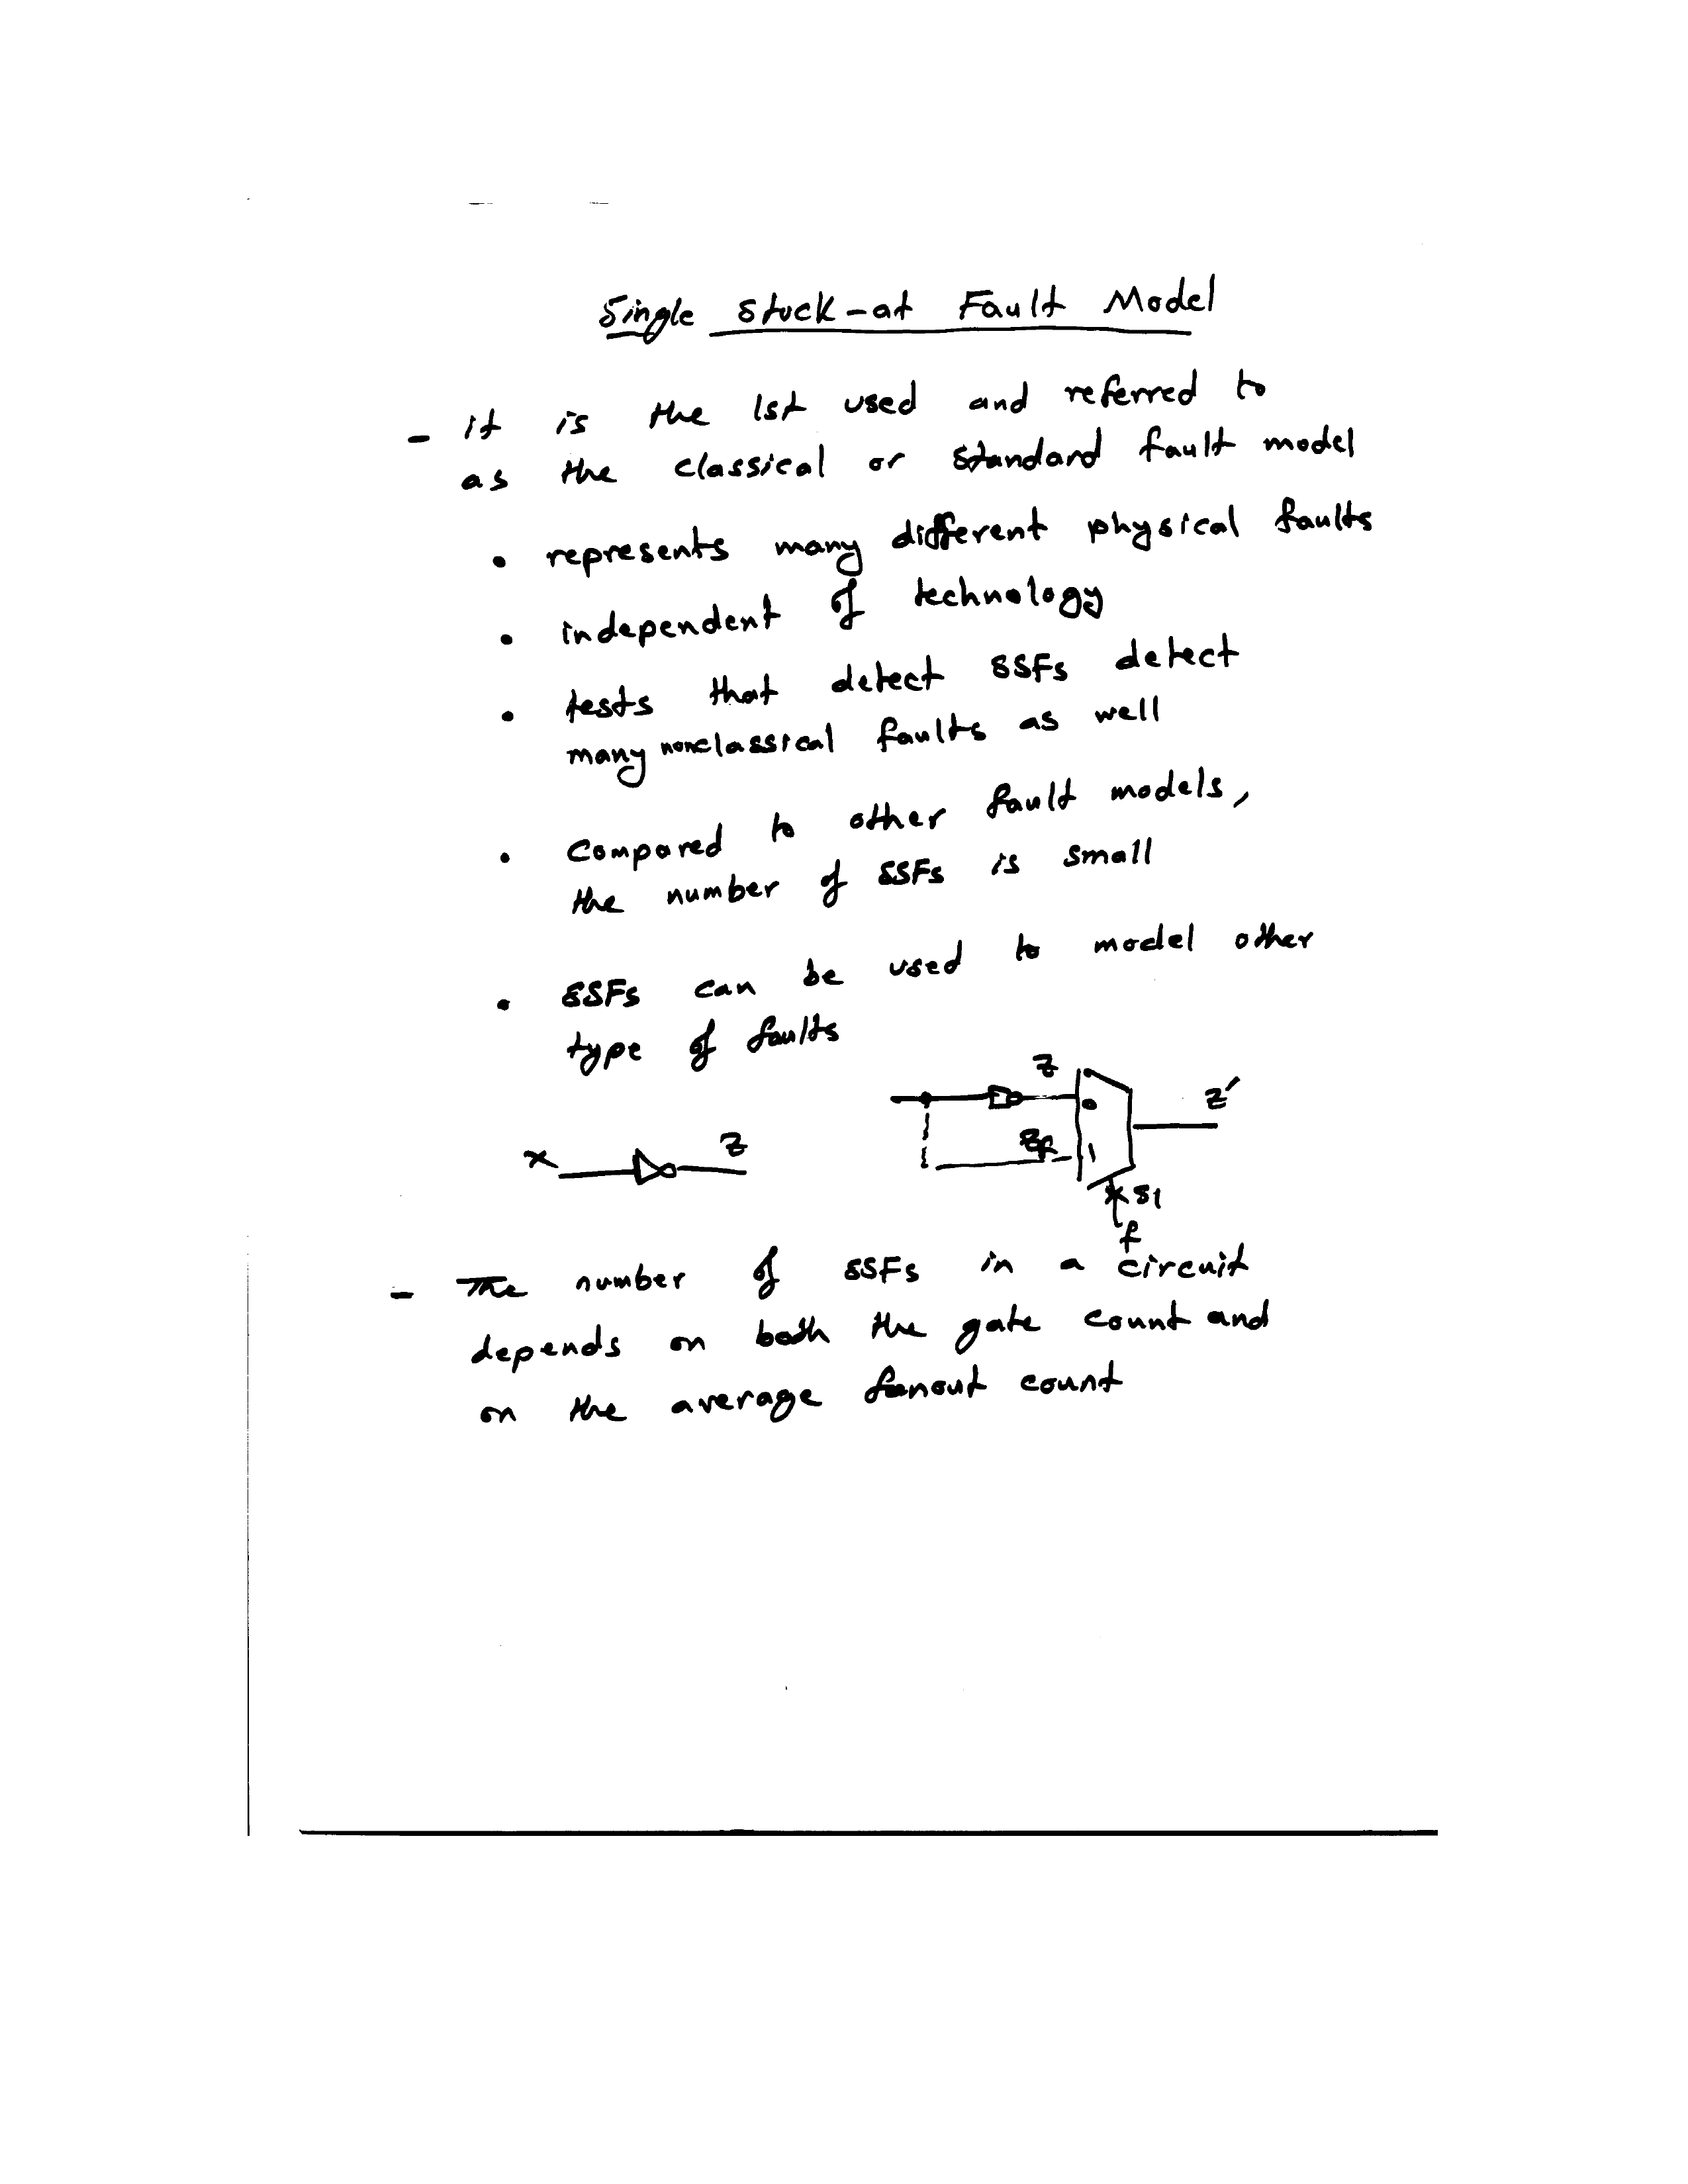 Single Stuck-at Fault Model
- it is the 1st used and referred to
as the classical or standard fault model
• represents many different physical faults
• independent of technology
• tests that detect SSFs detect
many nonclassical faults as well
• Compared to other fault models,
the number of SSFs is small
• SSFs can be used to model other
type of faults
x z
z
0
z'
zf
1
s1
f
- The number of SSFs in a circuit
depends on both the gate count and
on the average fanout count